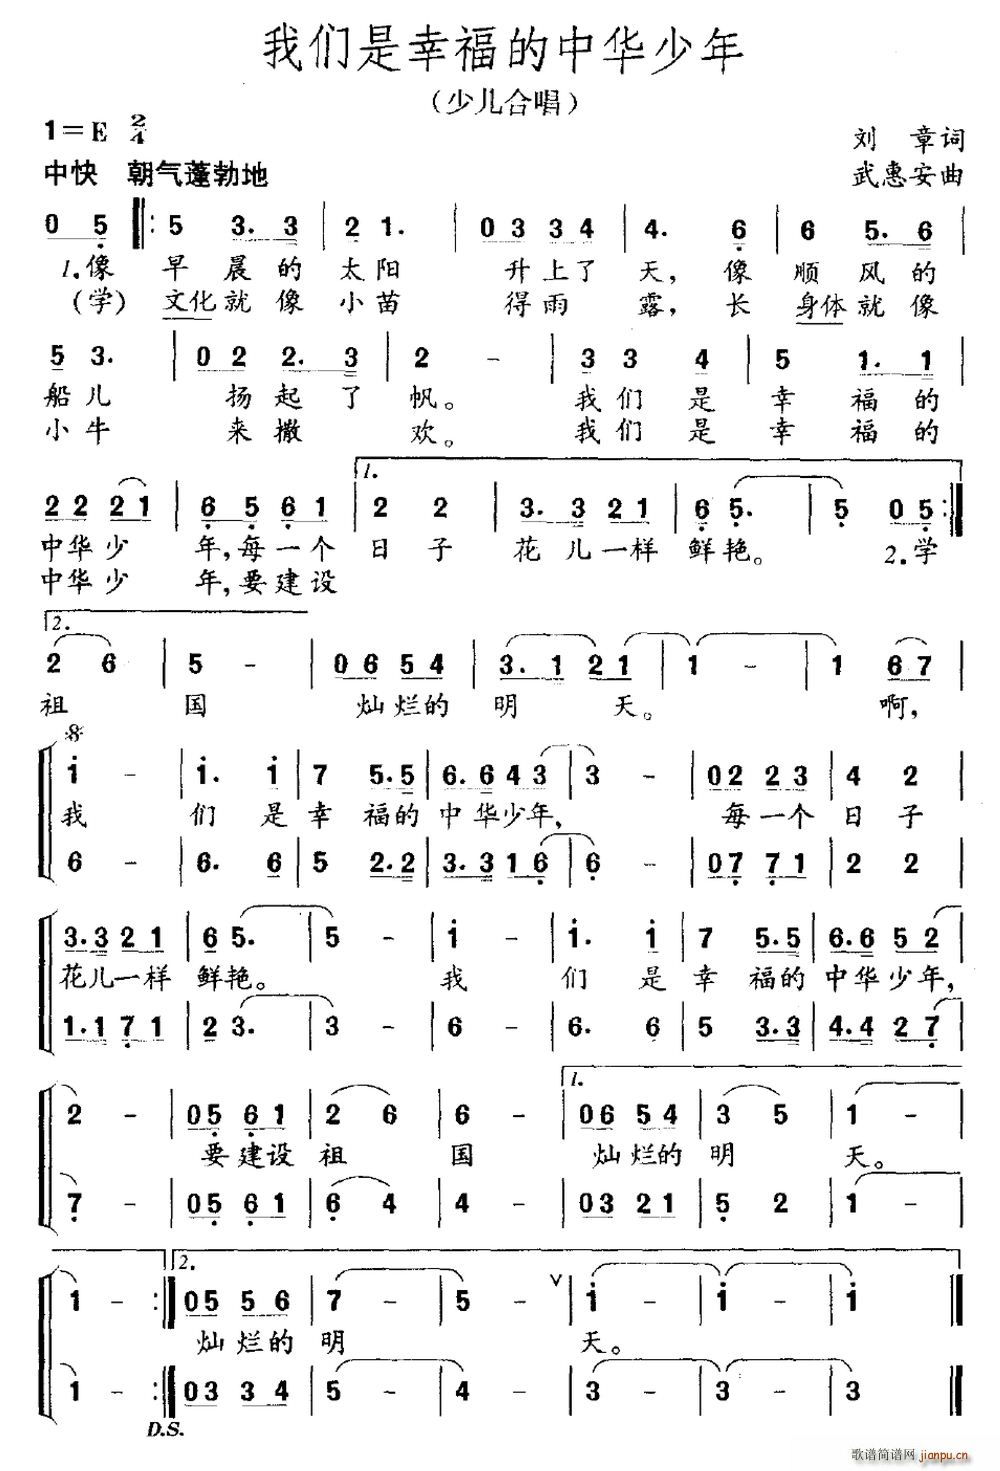 我们是幸福的中华少年
（少儿合唱）
1=E 2/4
刘 章词
中快 朝气蓬勃地
武惠安曲
0 5 5 3. 3 2 1. 0 3 3 4 4. 6 6 5. 6
1.像 早 晨 的 太 阳 升 上 了 天，像 顺 风 的
(学) 文化 就 像 小 苗 得 雨 露，长 身体 就 像
5 3. 0 2 2. 3 2 - 3 3 4 5 1. 1
船 儿 扬 起 了 帆。 我 们 是 幸 福 的
小 牛 来 撒 欢。 我 们 是 幸 福 的
1.
2 2 2 1 6 5 6 1 2 2 3. 3 2 1 6 5. 5 0 5
中华少 年，每一个 日 子 花 儿一样 鲜 艳。 2.学
中华少 年，要建设
2.
2 6 5 - 0 6 5 4 3. 1 2 1 1 - 1 6 7
祖 国 灿烂的 明 天。 啊，
1 - 1. 1 7 5. 5 6. 6 4 3 3 - 0 2 2 3 4 2
我 们 是 幸 福的 中华少年， 每一个 日 子
6 - 6. 6 5 2. 2 3. 3 1 6 6 - 0 7 7 1 2 2
3. 3 2 1 6 5. 5 - 1 - 1. 1 7 5. 5 6. 6 5 2
花儿一样 鲜艳。 我 们 是 幸 福的 中华少年，
1. 1 7 1 2 3. 3 - 6 - 6. 6 5 3. 3 4. 4 2 7
1.
2 - 0 5 6 1 2 6 6 - 0 6 5 4 3 5 1 -
要建设 祖 国 灿烂的 明 天。
7 - 0 5 6 1 6 4 4 - 0 3 2 1 5 2 1 -
2.
1 - 0 5 5 6 7 - 5 - 1 - 1 - 1
灿烂的 明 天。
1 - 0 3 3 4 5 - 4 - 3 - 3 - 3
D.S.
歌谱简谱网 jianpu.cn